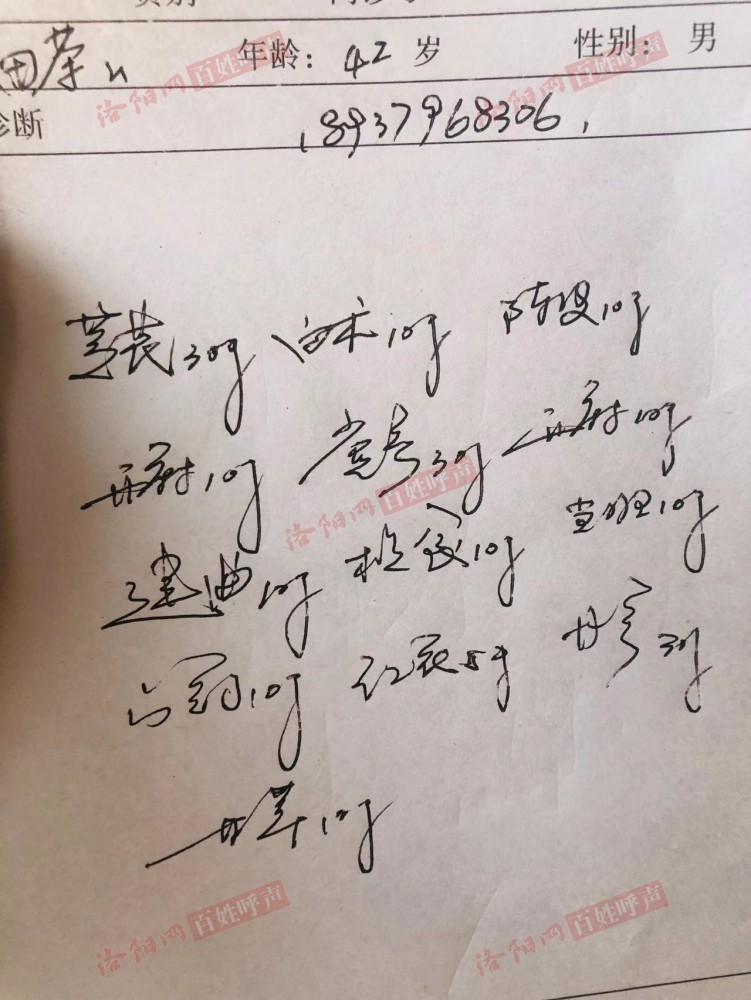 年龄: 42 岁 性别: 男
诊断 18937968306
黄芪30g 白术10g 陈皮10g
升麻10g 党参30g 升麻10g
建曲10g 10g 10g
白芍10g 红花5g 30g
甘草10g
洛阳网 百姓呼声
洛阳网 百姓呼声
洛阳网 百姓呼声
洛阳网 百姓呼声
洛阳网 百姓呼声